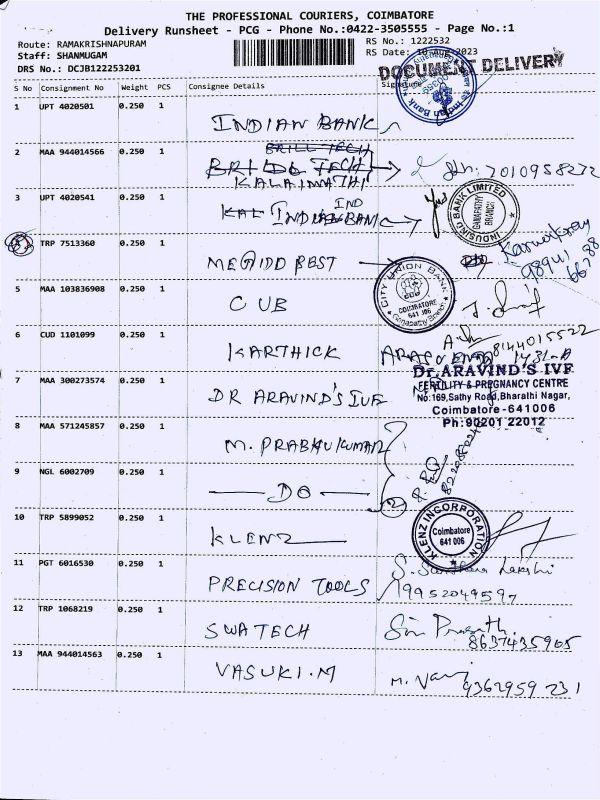 THE PROFESSIONAL COURIERS, COIMBATORE
Delivery Runsheet - PCG - Phone No.:0422-3505555 - Page No.:1
Route: RAMAKRISHNAPURAM
RS No.: 1222532
Staff: SHANMUGAM
RS Date: 2023
DRS No.: DCJB122253201
DOCUMENT DELIVERY
S No Consignment No Weight PCS Consignee Details Signature
1 UPT 4020501 0.250 1
INDIAN BANK
Indian Bank
2 MAA 944014566 0.250 1
BRILL TECH
TECH
KALAIMATHI
7010958272
3 UPT 4020541 0.250 1
IND
KAL INDIAN BANK
INDUSIND BANK LIMITED
GANAPATHY BRANCH
4 TRP 7513360 0.250 1
MEGIDD BEST
98941
5 MAA 103836908 0.250 1
CUB
CITY UNION BANK
COIMBATORE
641 006
Ganapathy Branch
6 CUD 1101099 0.250 1
KARTHICK
8144015522
7 MAA 300273574 0.250 1
DR ARAVIND'S IVF
Dr.ARAVIND'S IVF
FERTILITY & PREGNANCY CENTRE
No:169,Sathy Road,Bharathi Nagar,
Coimbatore-641006
Ph:90201 22012
8 MAA 571245857 0.250 1
M. PRABHU KUMAR
9 NGL 6002709 0.250 1
DO
2
10 TRP 5899052 0.250 1
KLENZ
KLENZ INCORPORATION
Coimbatore
641 006
11 PGT 6016530 0.250 1
PRECISION TOOLS
9952049597
12 TRP 1068219 0.250 1
SWATECH
8637435905
13 MAA 944014563 0.250 1
VASUKI.M
9362959231